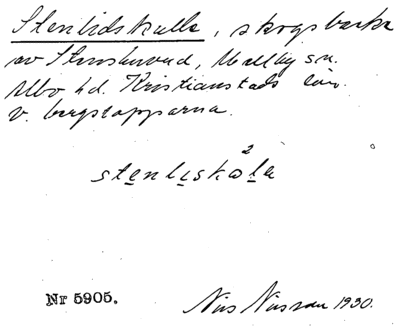 Stenlidskulle, skogsbacke
av Stenshuvud, Mellby sn.
Albo hd. Kristianstads län.
v. bergstopparna.
2
stenliskola
Nr 5905.
Nils Nilsson 1930.